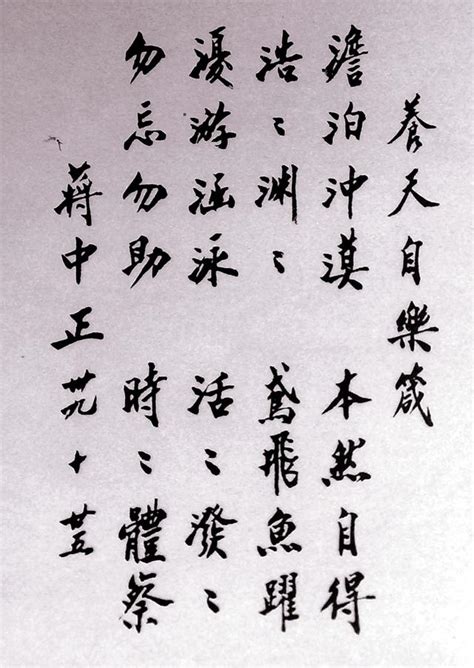 養天自樂箴
澹泊沖漠 本然自得
浩〻淵〻 鳶飛魚躍
優游涵泳 活〻潑〻
勿忘勿助 時〻體察
蔣中正 卅九 十 廿五